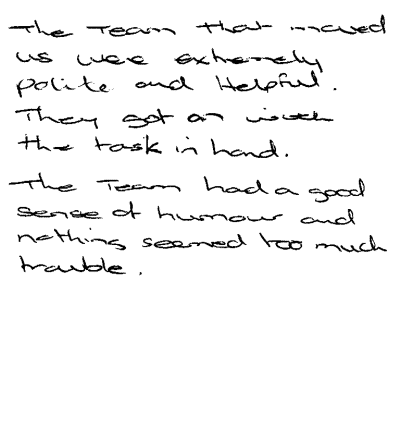 The Team that moved
us were extremely
polite and Helpful.
They got on with
the task in hand.
The Team had a good
sense of humour and
nothing seemed too much
trouble.